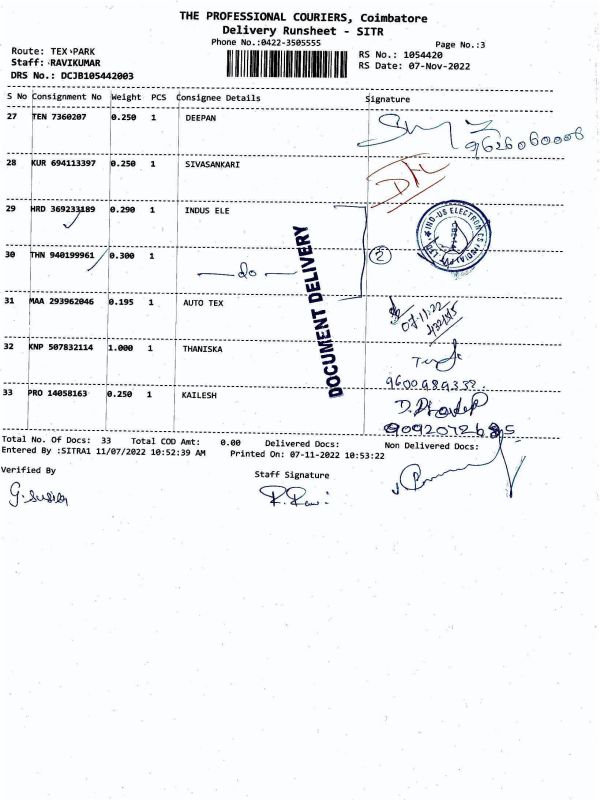 THE PROFESSIONAL COURIERS, Coimbatore
Delivery Runsheet - SITR
Phone No.:0422-3505555
Page No.:3
Route: TEX PARK
Staff: RAVIKUMAR
DRS No.: DCJB105442003
RS No.: 1054420
RS Date: 07-Nov-2022
S No Consignment No Weight PCS Consignee Details Signature
27 TEN 7360207 0.250 1 DEEPAN
9626060006
28 KUR 694113397 0.250 1 SIVASANKARI
DL
29 HRD 369233189 0.290 1 INDUS ELE
30 THN 940199961 0.300 1 —do— 2
DOCUMENT DELIVERY
31 MAA 293962046 0.195 1 AUTO TEX
07.11.22
32 KNP 507832114 1.000 1 THANISKA
9600989332.
33 PRO 14058163 0.250 1 KAILESH
Total No. Of Docs: 33 Total COD Amt: 0.00 Delivered Docs: Non Delivered Docs:
Entered By :SITRA1 11/07/2022 10:52:39 AM Printed On: 07-11-2022 10:53:22
Verified By
Staff Signature
R. Ravi